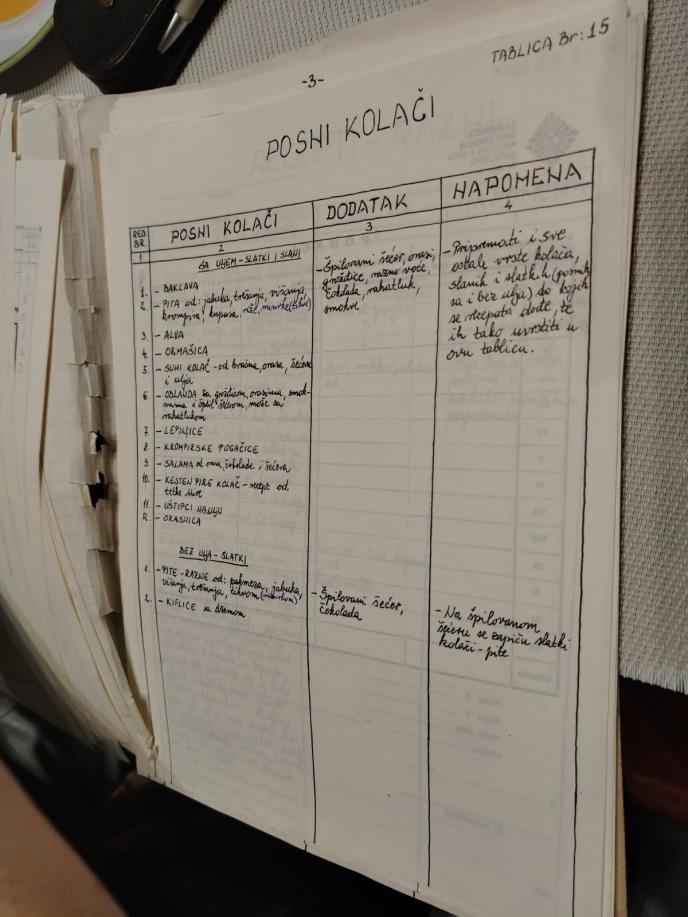 TABLICA Br: 15
-3-
POSNI KOLAČI
RED. BR.
POSNI KOLAČI
DODATAK
NAPOMENA
1
2
3
4
SA ULJEM - SLATKI I SLANI
1. - BAKLAVA
2. - PITA od: jabuka, trešanja, višanja,
krompira, kupusa,
3. - ALVA
4. - ORMAŠICA
5. - SUHI KOLAČ - od brašna, oraha, šećera
i ulja
6. - OBLANDA sa grožđicem, orasima, smok-
vama i špil. šećerom, može sa
rahatlukom
7. - LEPINJICE
8. - KROMPIRSKE POGAČICE
9. - SALAMA od oraha, čokolade i šećera
10. - KESTEN PIRE KOLAČ - recept od
tetke Mire
11. - UŠTIPCI NA ULJU
12. - ORASNICA
- Špilovani šećer, orasi,
grožđice, razno voće,
čokolada, rahatluk,
smokve
- Pripremati i sve
ostale vrste kolača,
slanih i slatkih (posnih
sa i bez ulja) do kojih
se recepata dođe, te
ih tako uvrstiti u
ovu tablicu.
BEZ ULJA - SLATKI
1. - PITE - RAZNE od: pekmeza, jabuka,
višanja, trešanja, tikvom (mrkvom)
2. - KIFLICE sa džemom
- Špilovani šećer,
čokolada
- Na špilovanom
šećeru se zapiču slatki
kolači - pite